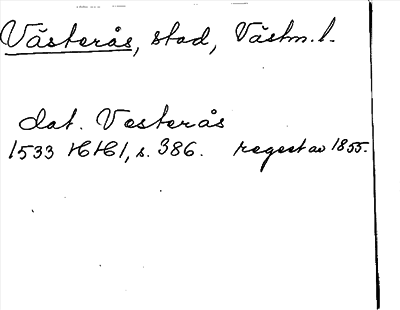 Västerås, stad, Västm. l.
dat. Vesterås
1533 HH1, s. 386. regest av 1855.